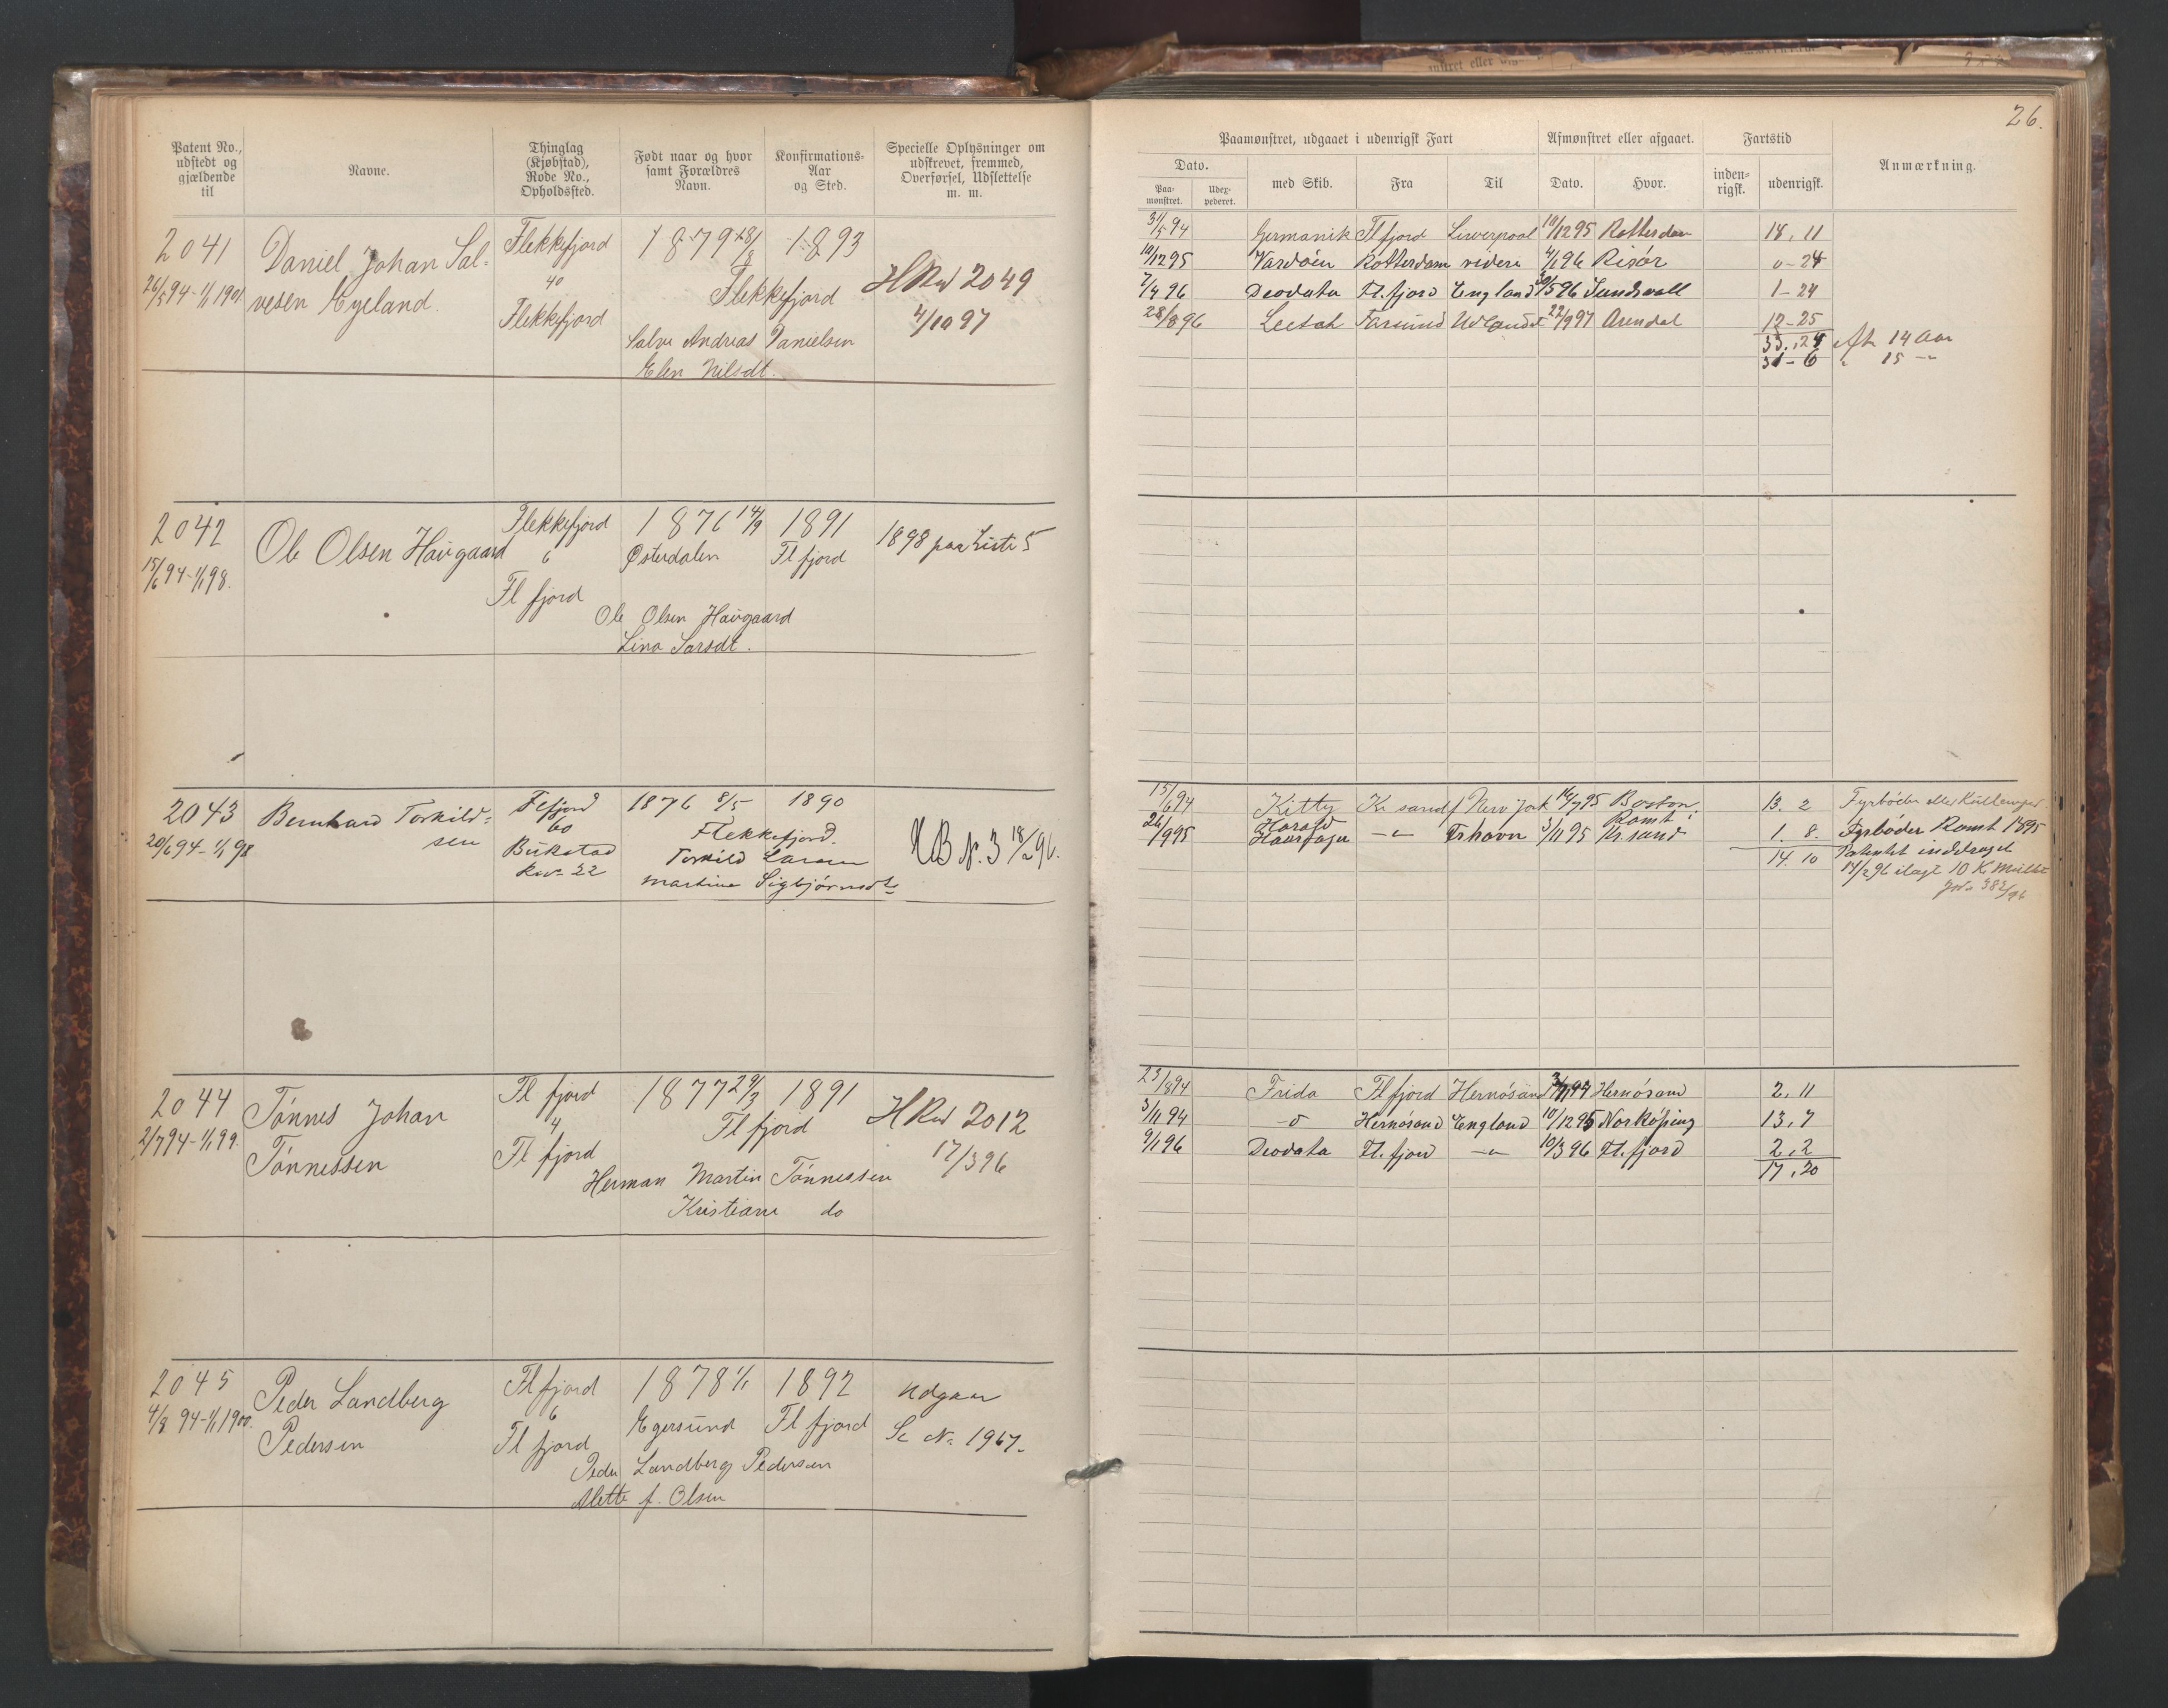 26.
Patent No., udstedt og gjældende til
Navne.
Thinglag (Kjøbstad), Rode No., Opholdssted.
Født naar og hvor samt Forældres Navn.
Konfirmations-Aar og Sted.
Specielle Oplysninger om udskrevet, fremmed, Overførsel, Udslettelse m. m.
Paamønstret, udgaaet i udenrigsk Fart
Afmønstret eller afgaaet.
Fartstid
Anmærkning.
Dato.
Paa-mønstret.
med Skib.
Fra
Til
Dato.
Hvor.
inden-rigsk.
udenrigsk.
2041 Daniel Johan Sal- Flekkefjord 1879 18/8 1893
26/5 94-1/1 1901. vesen Eyeland. 40 Flekkefjord HRul 2049
Flekkefjord 4/10 97
Salve Andreas Danielsen
Elen Nilsdt.
31/5 94 Germanik Flfjord Liverpool 10/12 95 Rotterdam 18, 11
10/12 95 Vardöen Rotterdam videre 4/1 96 Risör 0-24
7/4 96 Deodata Fl.fjord England 30/5 96 Sundsvall 1-24
28/8 96 Farsund Udlandet 22/9 97 Arendal 12-25
33,24 14 Aar
31-6 15 —
2042 Ole Olsen Haugaard Flekkefjord 1876 14/9 1891 1898 paa Liste 5
15/6 94-1/1 98. 6 Østerdalen Flfjord
Fl fjord
Ole Olsen Haugaard
Lina Larsdt.
2043 Bernhard Torkild- Flfjord 1876 8/5 1890
20/6 94-1/1 98 sen 60 Flekkefjord. HB N. 3 18/2 96.
Bukstad Torkild Larsen
22 Martine Sigbjörnsdt
15/6 94 Kitty Kr sand New York 16/7 95 Boston 13. 2 Fyrböder eller Kullemper
26/9 95 Harald Haarfager —"— Frhavn 3/11 95 Kr.sand 1. 8. Fyrböder Romt 1895
14. 10 Patentet inddraget
14/2 96 ilagt 10 K Mulkt
2044 Tönnes Johan Fl fjord 1877 29/3 1891 HRul 2012
2/7 94-1/1 99. Tönnessen 4 Fl fjord 17/3 96
Fl fjord
Herman Martin Tönnessen
Kristiane do
23/8 94 Frida Flfjord Hernösand 3/11 94 Hernösand 2, 11
3/11 94 Hernösand England 10/12 95 Norköping 13, 7
9/1 96 Deodata Fl.fjord —"— 10/3 96 Fl.fjord 2, 2
17, 20
2045 Peder Landberg Fl fjord 1878 1/1 1892 Udgaar
4/8 94-1/1 1900. Pedersen 6 Egersund Fl fjord Se No 1967.
Fl fjord
Peder Landberg Pedersen
Alette f. Olsen